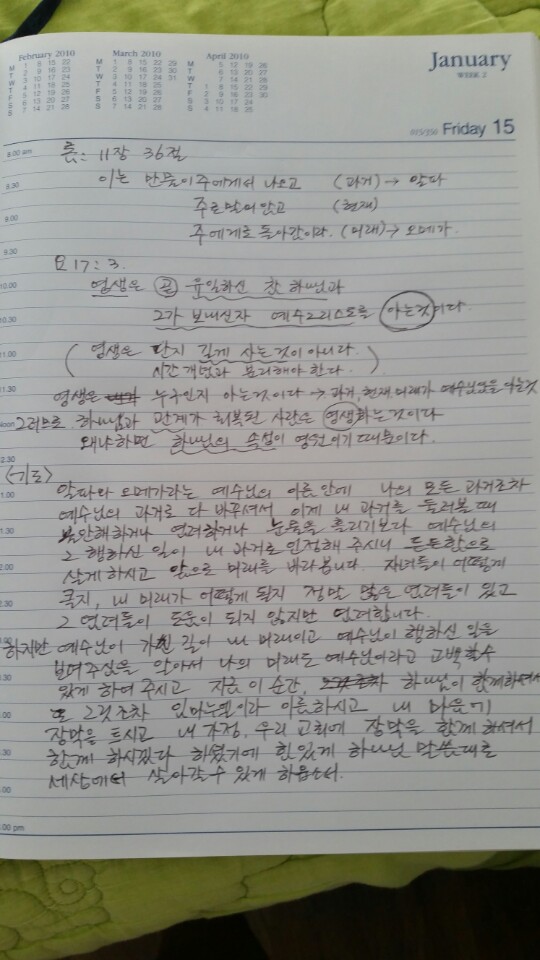 February 2010
M 1 8 15 22
T 2 9 16 23
W 3 10 17 24
T 4 11 18 25
F 5 12 19 26
S 6 13 20 27
S 7 14 21 28
March 2010
M 1 8 15 22 29
T 2 9 16 23 30
W 3 10 17 24 31
T 4 11 18 25
F 5 12 19 26
S 6 13 20 27
S 7 14 21 28
April 2010
M 5 12 19 26
T 6 13 20 27
W 7 14 21 28
T 1 8 15 22 29
F 2 9 16 23 30
S 3 10 17 24
S 4 11 18 25
January
WEEK 2
015/350 Friday 15
8.00 am
롬: 11장 36절
8.30 이는 만물이 주에게서 나오고 (과거) → 알파
9.00 주로 말미암고 (현재)
주에게로 돌아감이라. (미래) → 오메가.
9.30
요 17:3.
10.00 영생은 곧 유일하신 참 하나님과
10.30 그가 보내신자 예수그리스도를 아는것이다.
11.00 (영생은 단지 길게 사는 것이 아니다.
시간개념과 분리해야 한다.)
11.30 영생은 누구인지 아는것이다 → 과거, 현재, 미래가 예수님임을 아는것
noon 그러므로 하나님과 관계가 회복된 사람은 영생하는것이다
왜냐하면 하나님의 속성이 영원이기 때문이다.
12.30
<기도>
1.00 알파와 오메가라는 예수님의 이름안에 나의 모든 과거조차
예수님의 과거로 다 바꾸셔서 이제 내 과거를 돌려볼 때
1.30 불안해하거나 염려하거나 눈물을 흘리기보다 예수님의
그 행하신 일이 내 과거로 인정해 주시니 든든함으로
2.00 살게 하시고 앞으로 미래를 바라봅니다. 자녀들이 어떻게
클지, 내 미래가 어떻게 될지 정말 많은 염려들이 있고
2.30 그 염려들이 도움이 되지 않지만 염려합니다.
하지만 예수님이 가신 길이 내 미래이고 예수님이 행하신 일을
보여주심을 알아서 나의 미래도 예수님이라고 고백할수
있게 하여 주시고 지금 이 순간, 하나님이 함께하셔서
또 그것조차 임마누엘이라 이름하시고 내 마음에
장막을 트시고 내 가정, 우리 교회에 장막을 함께 하셔서
함께 하시겠다 하셨기에 힘있게 하나님 말씀대로
세상에서 살아갈 수 있게 하옵소서.